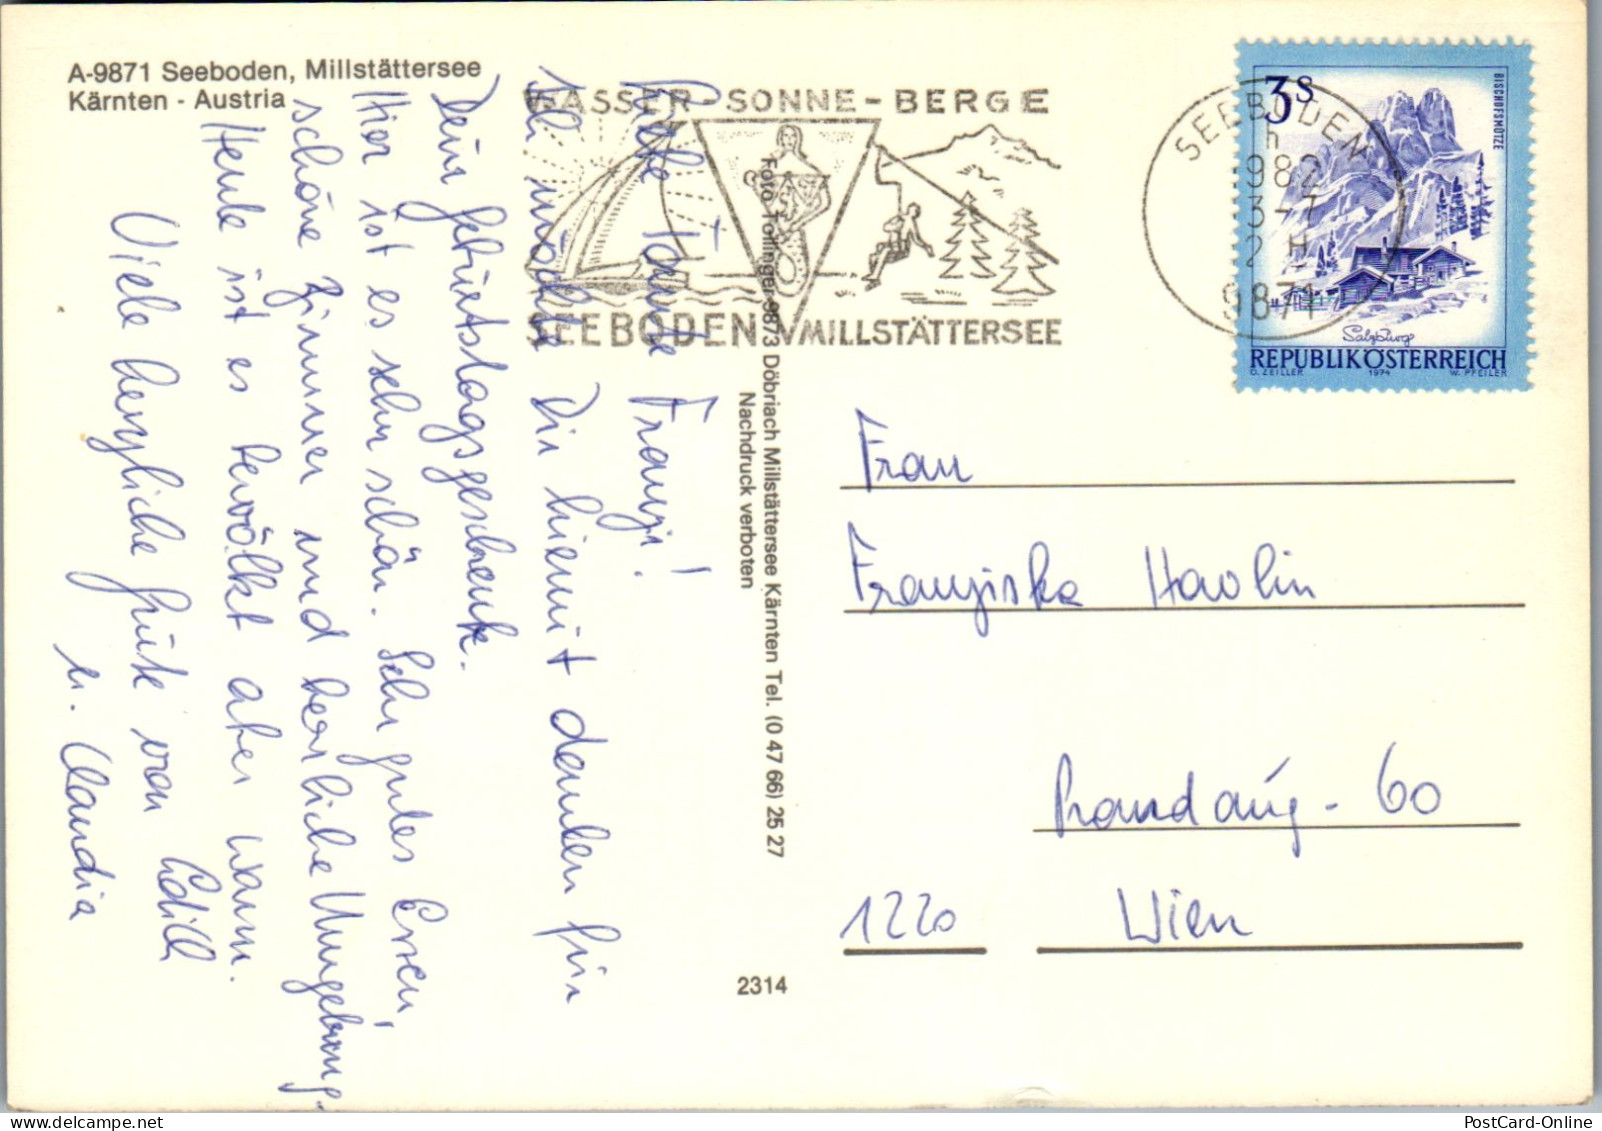 A-9871 Seeboden, Millstättersee
Kärnten - Austria
WASSER - SONNE - BERGE
SEEBODEN MILLSTÄTTERSEE
SEEBODEN
h
982
3-7
2 H
9871
3S
BISCHOFSMÜTZE
Salzburg
REPUBLIK ÖSTERREICH
O. ZEILLER 1974 W. PFEILER
Liebe Tante Franzi!
Ich möchte Dir hiemit danken für
Dein Geburtstagsgeschenk.
Hier ist es sehr schön. Sehr gutes Essen,
schöne Zimmer und herrliche Umgebung.
Heute ist es bewölkt aber warm.
Viele herzliche Grüße von Edith
u. Claudia
Foto Tollinger 9873 Döbriach Millstättersee Kärnten Tel. (0 47 66) 25 27
Nachdruck verboten
2314
Frau
Franziska Havlin
60
1220 Wien
PostCard-Online